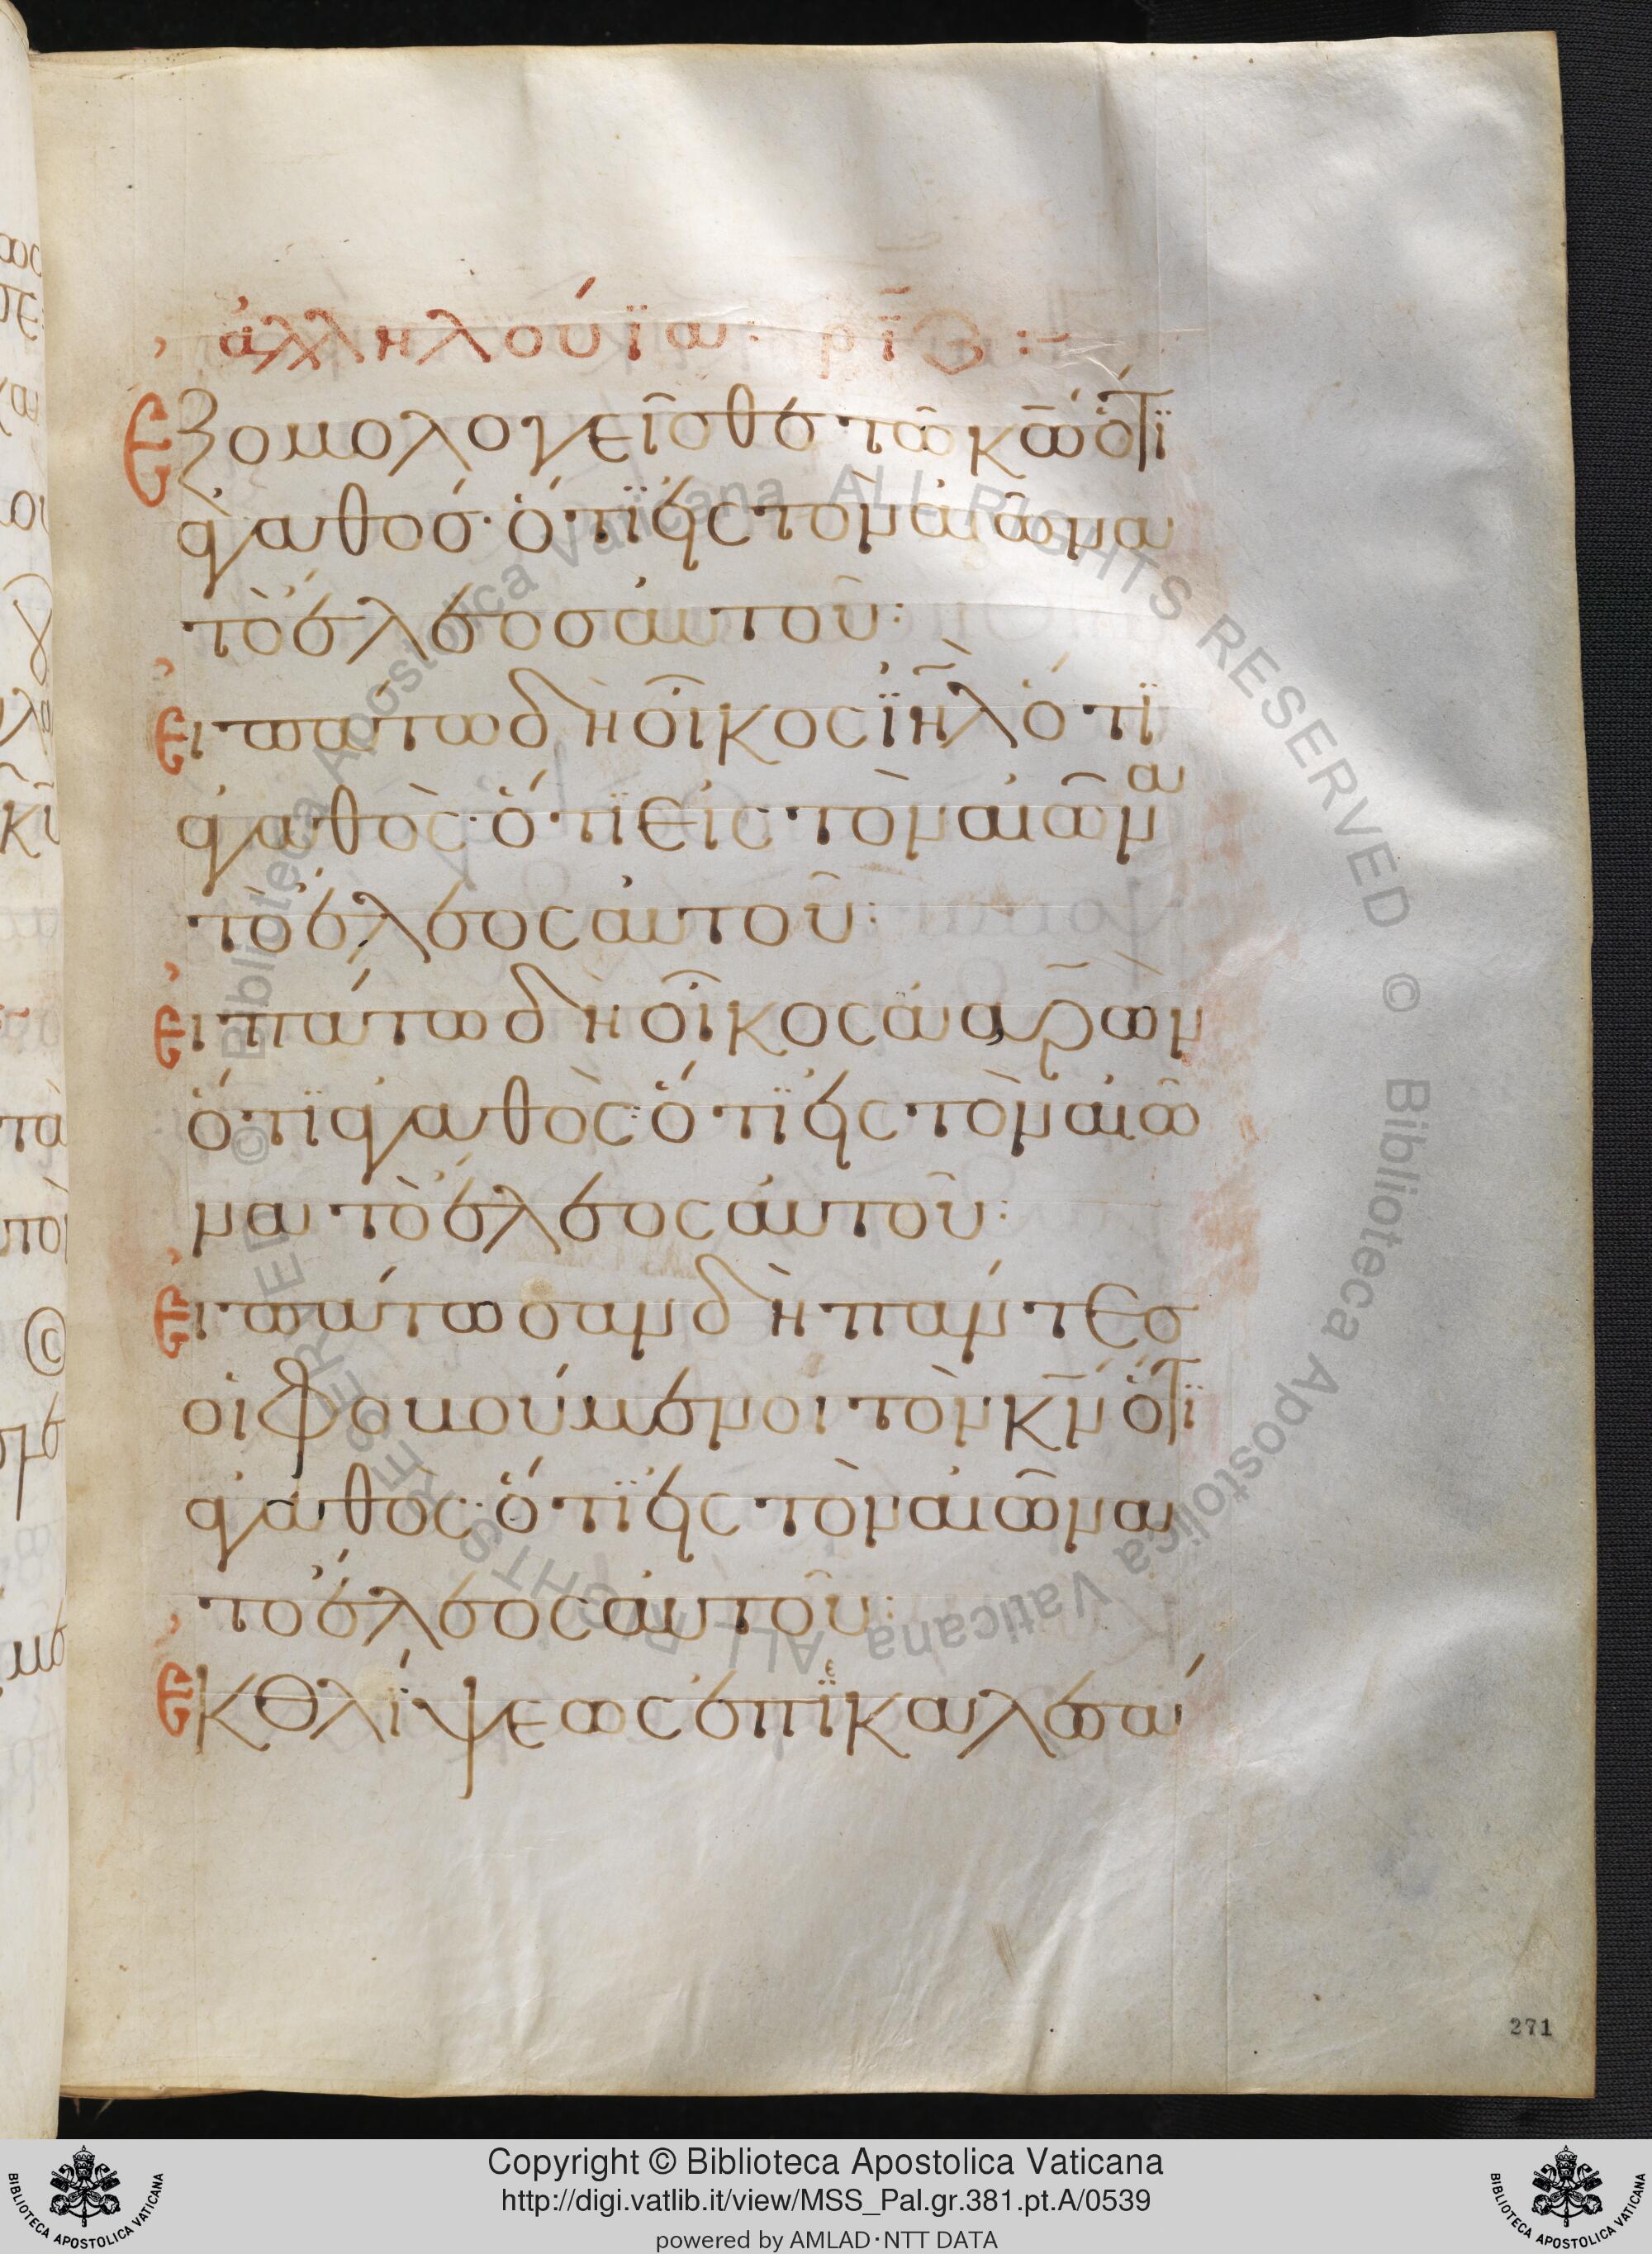 ἀλληλούϊα: ρι̅ζ :-
Ἐξομολογεῖσθε τῶ κ̅ω̅ ὅτϊ
ἀγαθόσ· ὅτϊ εἰς τὸν αἰῶνα
τὸ ἔλεοσ αὐτοῦ:
Εἰπάτω δὴ οἶκος ϊ̅η̅λ̅ ὅτϊ
ἀγαθὸς· ὅτϊ εἰς τὸν αἰῶνα
τὸ ἔλεος αὐτοῦ:
Εἰπάτω δὴ οἶκος ἀαρὼν
ὅτϊ ἀγαθὸς· ὅτϊ εἰς τὸν αἰῶ
να τὸ ἔλεος αὐτοῦ:
Εἰπάτωσαν δὴ πάντεσ
οἱ φοβούμενοι τὸν κ̅ν̅ ὅτϊ
ἀγαθός· ὅτϊ εἰς τὸν αἰῶνα
το ἔλεος αὐτοῦ:
Ἐκ θλίψεως ἐπϊεκαλεσά
271
© Biblioteca Apostolica Vaticana ALL RIGHTS RESERVED © Biblioteca Apostolica Vaticana ALL RIGHTS RESERVED
Copyright © Biblioteca Apostolica Vaticana
http://digi.vatlib.it/view/MSS_Pal.gr.381.pt.A/0539
powered by AMLAD·NTT DATA
BIBLIOTECA APOSTOLICA VATICANA
BIBLIOTECA APOSTOLICA VATICANA